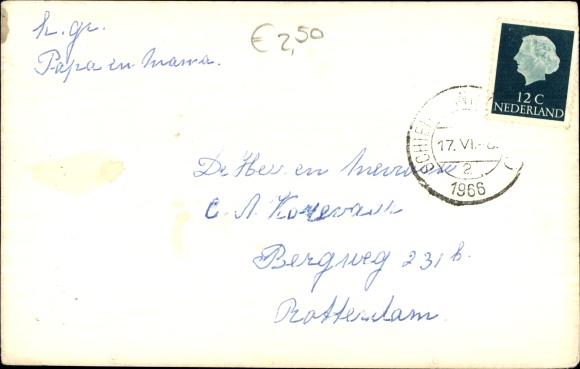 h. gr.
Papa en Mama.
€ 2,50
12 C
NEDERLAND
SCHIE
17. VI.
2
1966
De Heer en Mevrouw
C. A. Korevaar
Bergweg 231 b.
Rotterdam